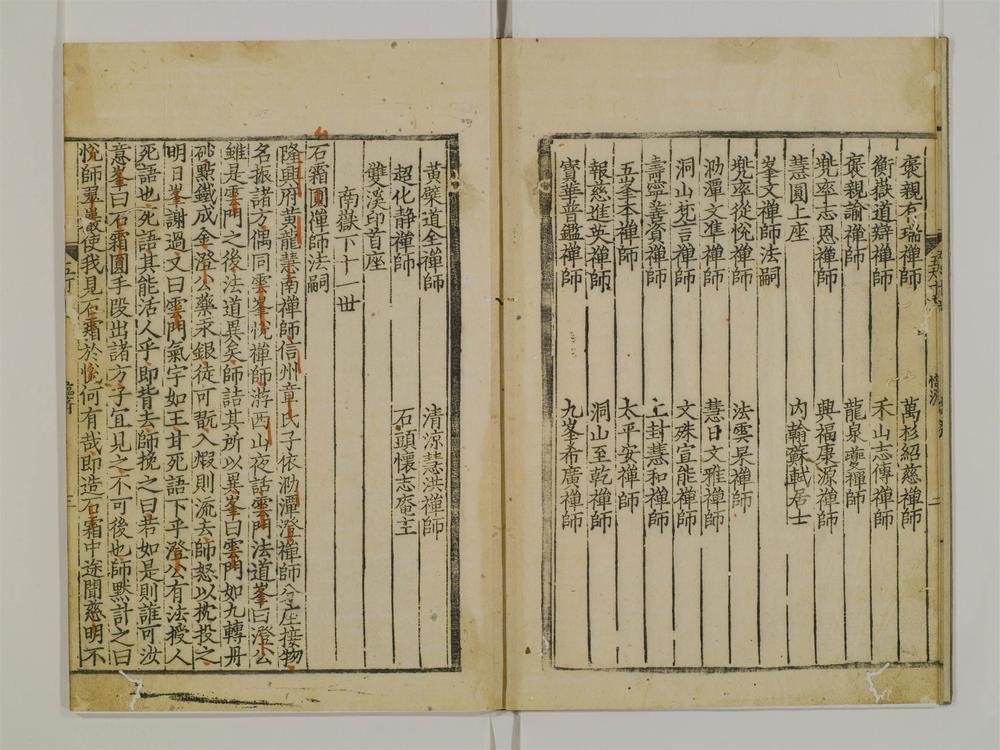 褒親有瑞禪師　萬杉紹慈禪師
衡嶽道辯禪師　禾山志傳禪師
褒親諭禪師　龍泉夔禪師
兠率志恩禪師　興福康源禪師
慧圓上座　内翰蘇軾居士
峯文禪師法嗣
兠率從悅禪師　法雲杲禪師
泐潭文凖禪師　慧日文雅禪師
洞山梵言禪師　文殊宣能禪師
壽寧善資禪師　上封慧和禪師
五峯本禪師　太平安禪師
報慈進英禪師　洞山至乾禪師
寳華普鑑禪師　九峯希廣禪師
黃檗道全禪師　清凉慧洪禪師
超化静禪師　石頭懷志庵主
雙溪印首座
南嶽下十一世
石霜圓禪師法嗣
隆興府黃龍慧南禪師信州章氏子依泐潭澄禪師分座接物
名振諸方偶同雲峯悅禪師游西山夜話雲門法道峯曰澄公
雖是雲門之後法道異矣師詰其所以異峯曰雲門如九轉丹
砂點鐵成金澄公藥汞銀徒可翫入煅則流去師怒以枕投之
明日峯謝過又曰雲門氣宇如王甘死語下乎澄公有法授人
死語也死語其能活人乎即背去師挽之曰若如是則誰可汝
意峯曰石霜圓手段出諸方子宜見之不可後也師默計之曰
悅師翠巖使我見石霜於悅何有哉即造石霜中途聞慈明不